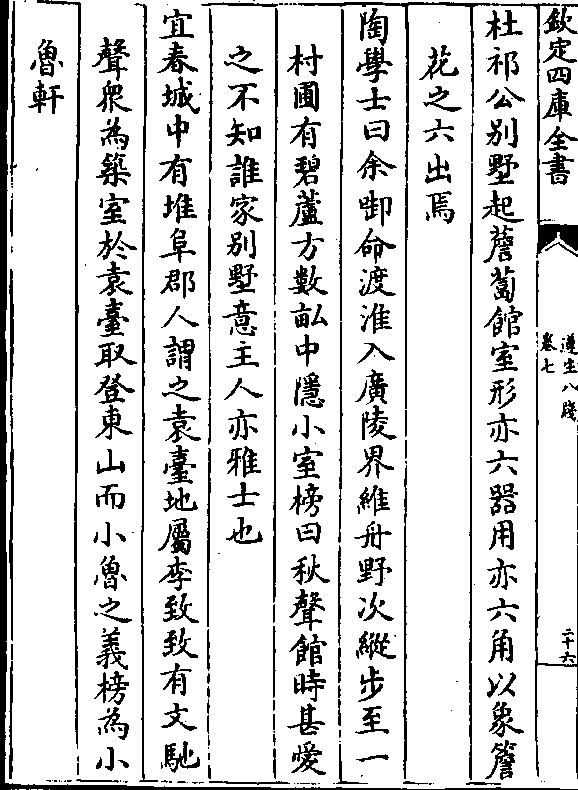 欽定四庫全書
遵生八牋
卷七
二十六
杜祁公别墅起薝蔔館室形亦六器用亦六角以象簷
花之六出焉
陶學士曰余啣命渡淮入廣陵界維舟野次縱步至一
村圃有碧蘆方數畝中隱小室榜曰秋聲館時甚愛
之不知誰家别墅意主人亦雅士也
宜春城中有堆阜郡人謂之袁臺地屬李致致有文馳
聲衆為築室於袁臺取登東山而小魯之義榜為小
魯軒